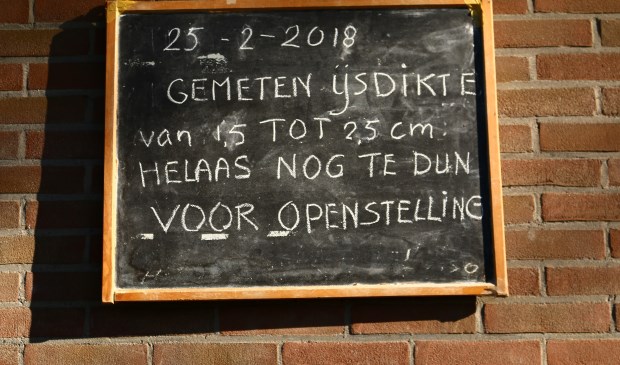 25 - 2 - 2018
GEMETEN IJSDIKTE
van 1,5 TOT 2,5 cm.
HELAAS NOG TE DUN
VOOR OPENSTELLING